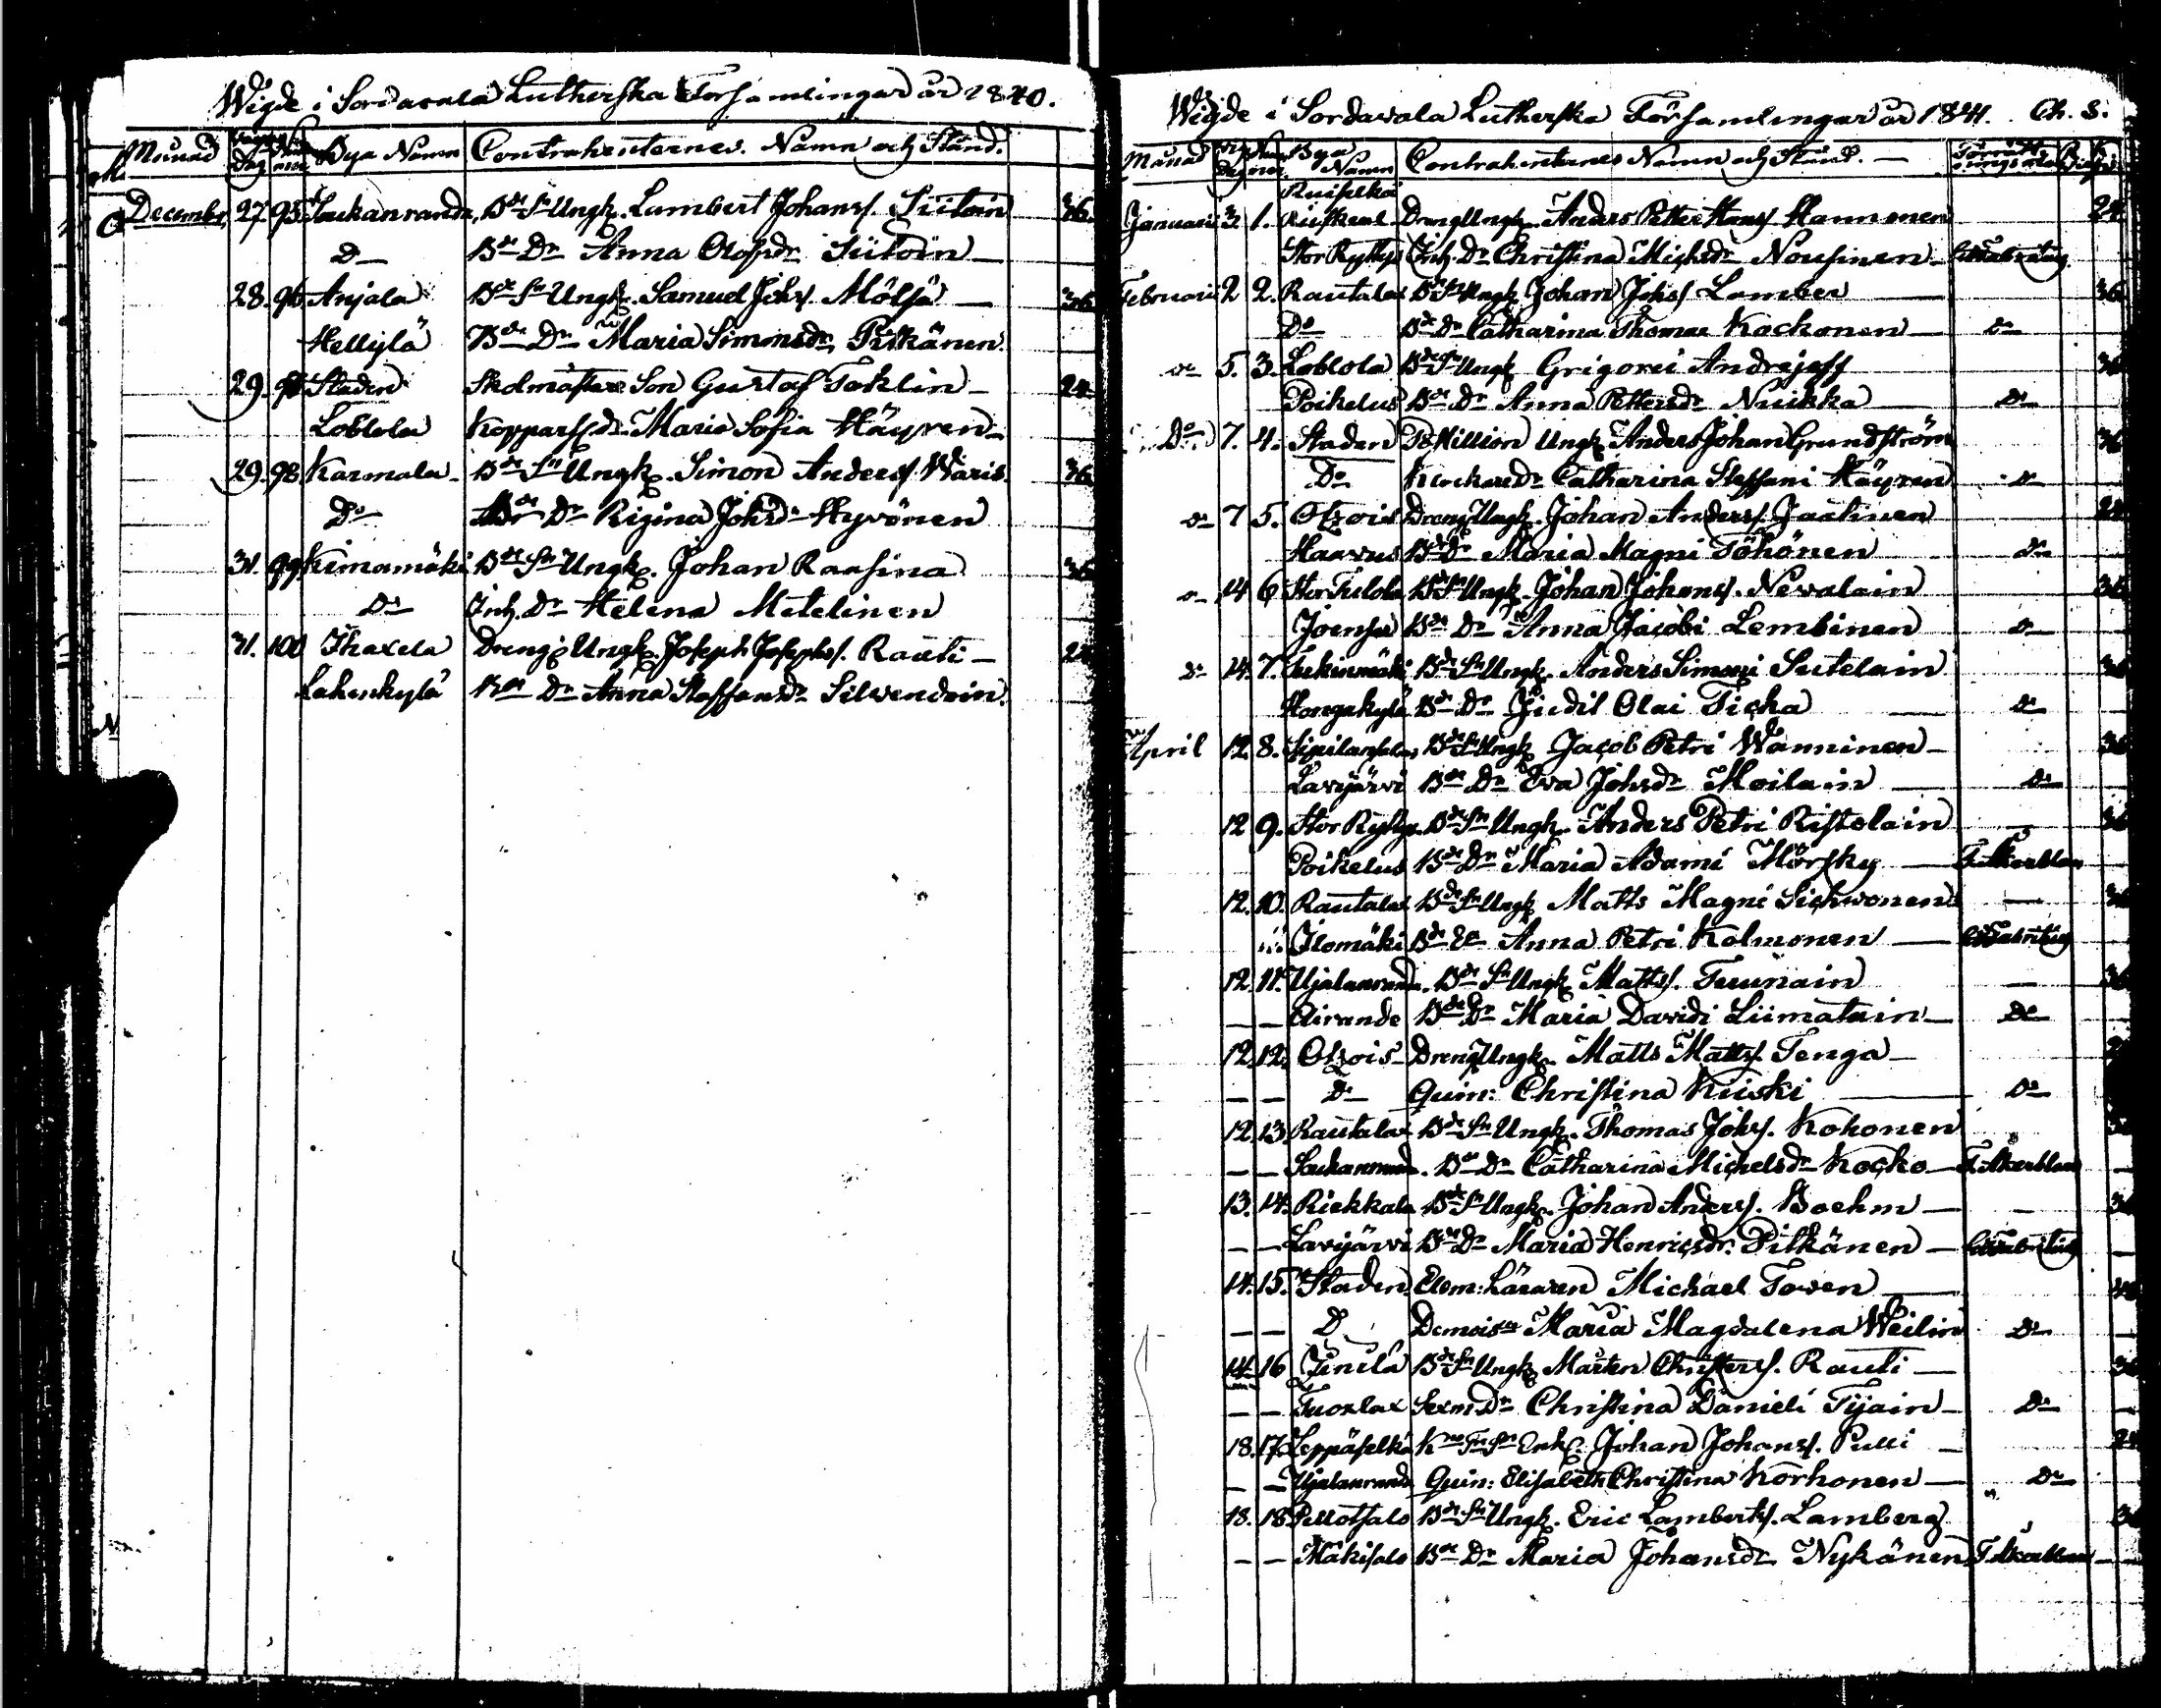 Wigde i Sordavala Lutherska Församlingar år 1840.
Månad Dag Bya Namn Contrahenternes Namn och Stånd.
December 27. 95 Soukanranda, Bde Sn Ungk. Lambert Johans. Siitoin 36
Do Bde Dr Anna Olofsdr Siitoin
28. 96 Anjala Bde Sn Ungk. Samuel Johs. Mölsä 36
Hellylä Bde Dr Maria Simonsdr Pitkänen.
29. 97 Staden Skolmästare Son Gustaf Toklin 24
Loblola Koppars. dr Maria Sofia Häyren
29. 98 Karmala Bde Sn Ungk. Simon Anders. Waris 36
Do Bde Dr Rigina Johsdr Hyvönen
31. 99 Kimamäki Bde Sn Ungk. Johan Raasina 36
Do Inh. Dr Helena Metelinen
31. 100 Ihaxela Dreng Ungk. Joseph Josephs. Rauti 24
Lahenkylä Bde Dr Anna Staffansdr Silvendoin.
Wigde i Sordavala Lutherska Församlingar år 1841. Ch. S.
Månad Bya Namn Contrahenternes Namn och Stånd.
Ruiselkä
Januari 3. 1. Dreng Ungk. Anders Petter Hans. Hannonen 24
Stor Rytty Inh. Dr Christina Michsdr Nousinen
Februari 2 2. Rautalax Bde Sn Ungk. Johan Johs. Lamber 36
Do Bde Dr Catharina Thomae Kockonen do
do 5. 3. Loblola Bde Sn Ungk Grigorei Andrejeff 36
Poikelus Bde Dr Anna Pettersdr Nuikka Do
Do 7. 4. Staden Ungk. Anders Johan Grundström 36
Do Dr Catharina Steffani Häyren Do
do 7 5. Otsois Dreng Ungk. Johan Anders. Jaatinen 24
Haavus Bde Dr Maria Magni Töhönen Do
do 14 6 Stor Tulola Bde Sn Ungk. Johan Johans. Nevalain 36
Joensu Bde Dr Anna Jacobi Lembinen do
do 14. 7. Tuokinmäki Bde Sn Ungk. Anders Simoni Sutelain 36
Hongakylä Bde Dr Judit Olai Ticka Do
April 12. 8. Bde Sn Ungk Jacob Petri Wänninen 36
Lavijärvi Bde Dr Eva Johsdr Moilain Do
12 9. Stor Rytty Bde Sn Ungk. Anders Petri Ristolain 36
Poikelus Bde Dr Maria Adami Mörsky F. Åkerblom
12. 10. Rautalax Bde Sn Ungk Matts Magni Sichvonen 36
Ilomäki Bde Ea Anna Petri Kolmonen
12. 11. Ujalanranda. Bde Sn Ungk. Matts. Tuunain 36
Airande Bde Dr Maria Davidi Liimatain Do
12. 12. Otsois Dreng Ungk. Matts Matts. Tenga
Do Quin: Christina Kuiski Do
12. 13. Rautalax Bde Sn Ungk. Thomas Johs. Kohonen 36
Soukanrand. Bde Dr Catharina Michelsdr Kocko F. Åkerblom
13. 14. Riekkala Bde Sn Ungk. Johan Anders. Boehm 36
Lavijärvi Bde Dr Maria Henricsdr. Pitkänen
14. 15. Staden Elem: Läraren Michael Toven
D Demoiselle Maria Magdalena Weilin Do
14 16 Tunula Bde Sn Ungk Mårten Christers. Rauti 36
Tuoxlax Sexm Dr Christina Danieli Tijain Do
18. 17. Leppäselkä Enk. Johan Johans. Pulli 24
Ujalanranda Quin: Elisabeth Christina Korhonen Do
18. 18 Pellotsalo Bde Sn Ungk. Eric Lamberts. Lamberg 36
Mäkisalo Bde Dr Maria Johansdr Nykänen F. Åkerblom